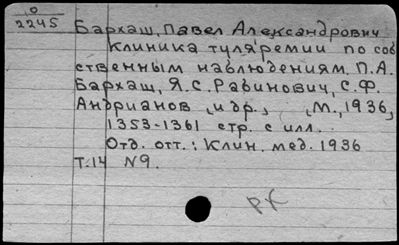 0
2245 Бархаш, Павел Александрович
Клиника туляремии по соб
ственным наблюдениям. П.А.
Бархаш, Я.С. Рабинович, С.Ф.
Андрианов, и др., , М., 1936,
1353-1361 стр. с илл.
Отд. отт.: Клин. мед. 1936
Т.14 N9.
РК